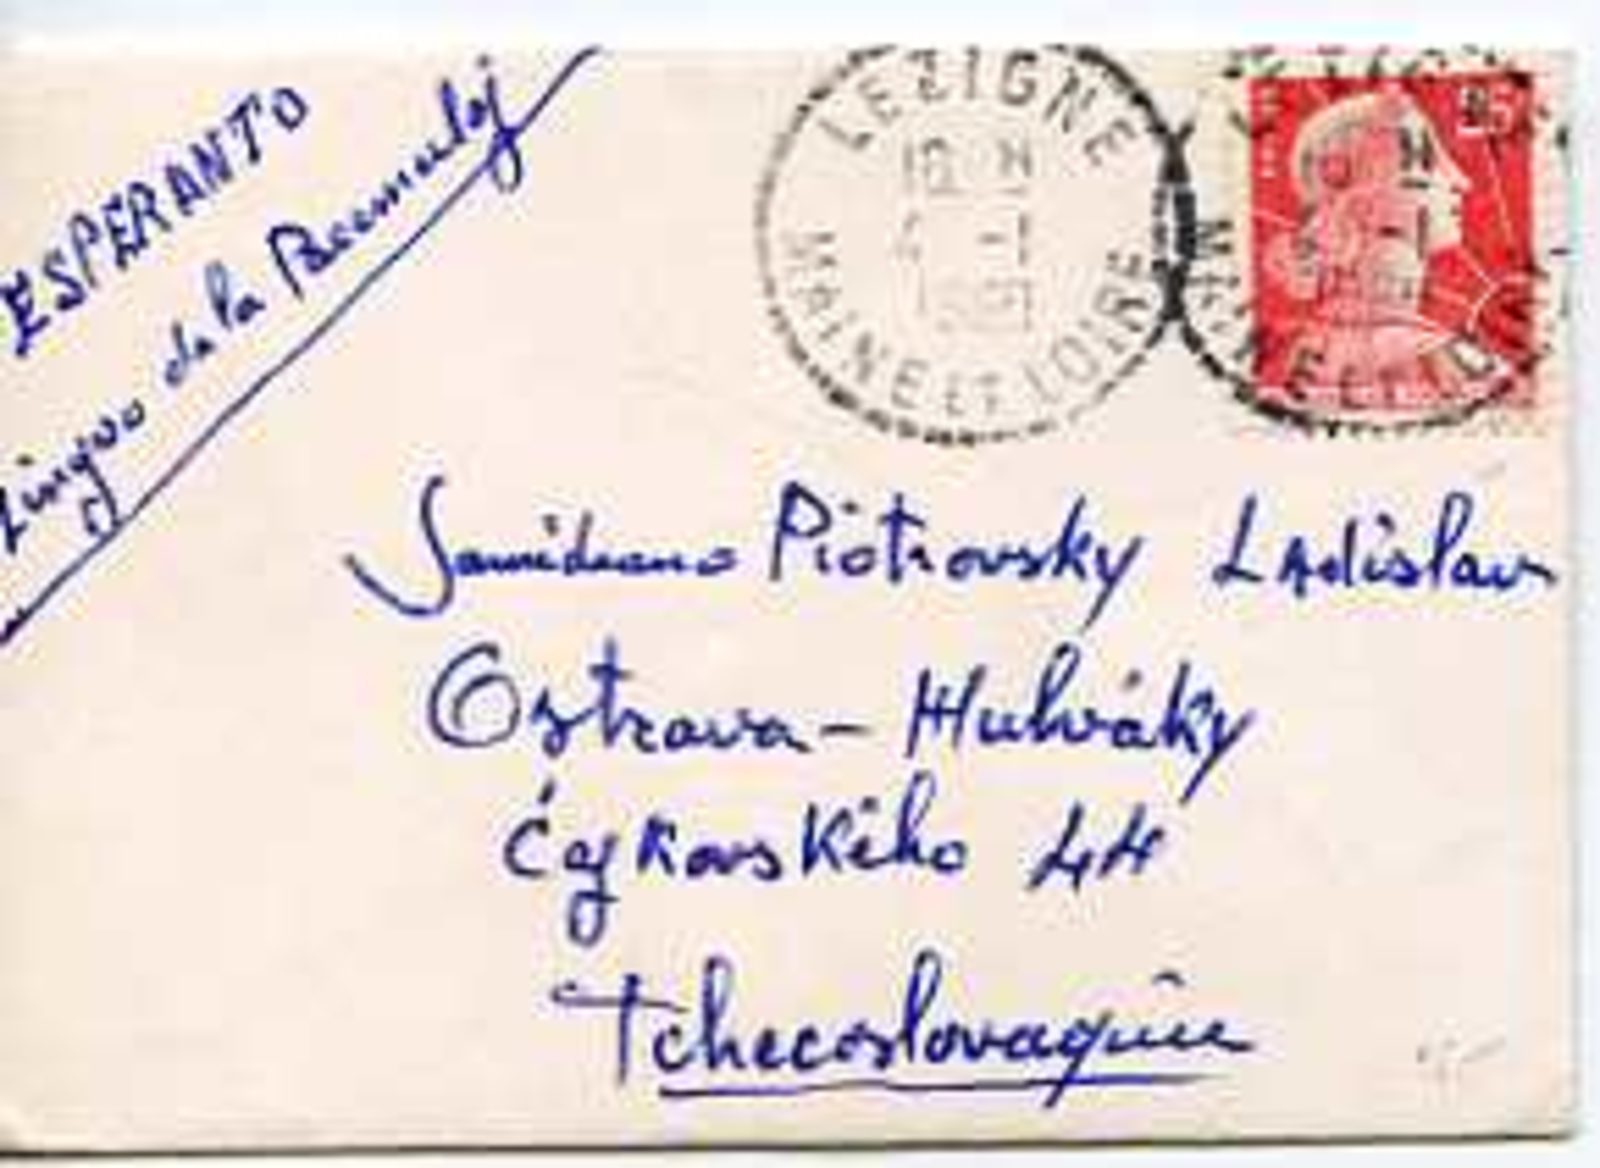 ESPERANTO
Lingvo de la
LEZIGNE
MAINE ET LOIRE
25
Samideano Piotrovsky Ladislav
Ostrava - Hulváky
Čajkovského 44
Tchecoslovaquie